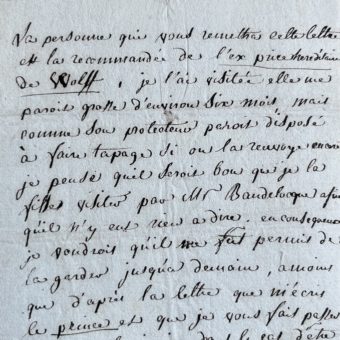 La personne que vous remettra cette lettre
est la recommandée de l'ex prince héréditaire
de Wolff, je l'ai visitée elle me
paroit grosse d'environ six mois, mais
comme son protecteur paroit disposé
à faire tapage si on la renvoye encore
je pense qu'il seroit bon que je la
fisse visiter par Mr Baudelocque afin
qu'il n'y eut rien a dire. en conséquence
je voudrois qu'il me fut permis de
la garder jusqu'a demain, amoins
que d'après la lettre que m'écris
le prince et que je vous fait passer
dans le cas d'être